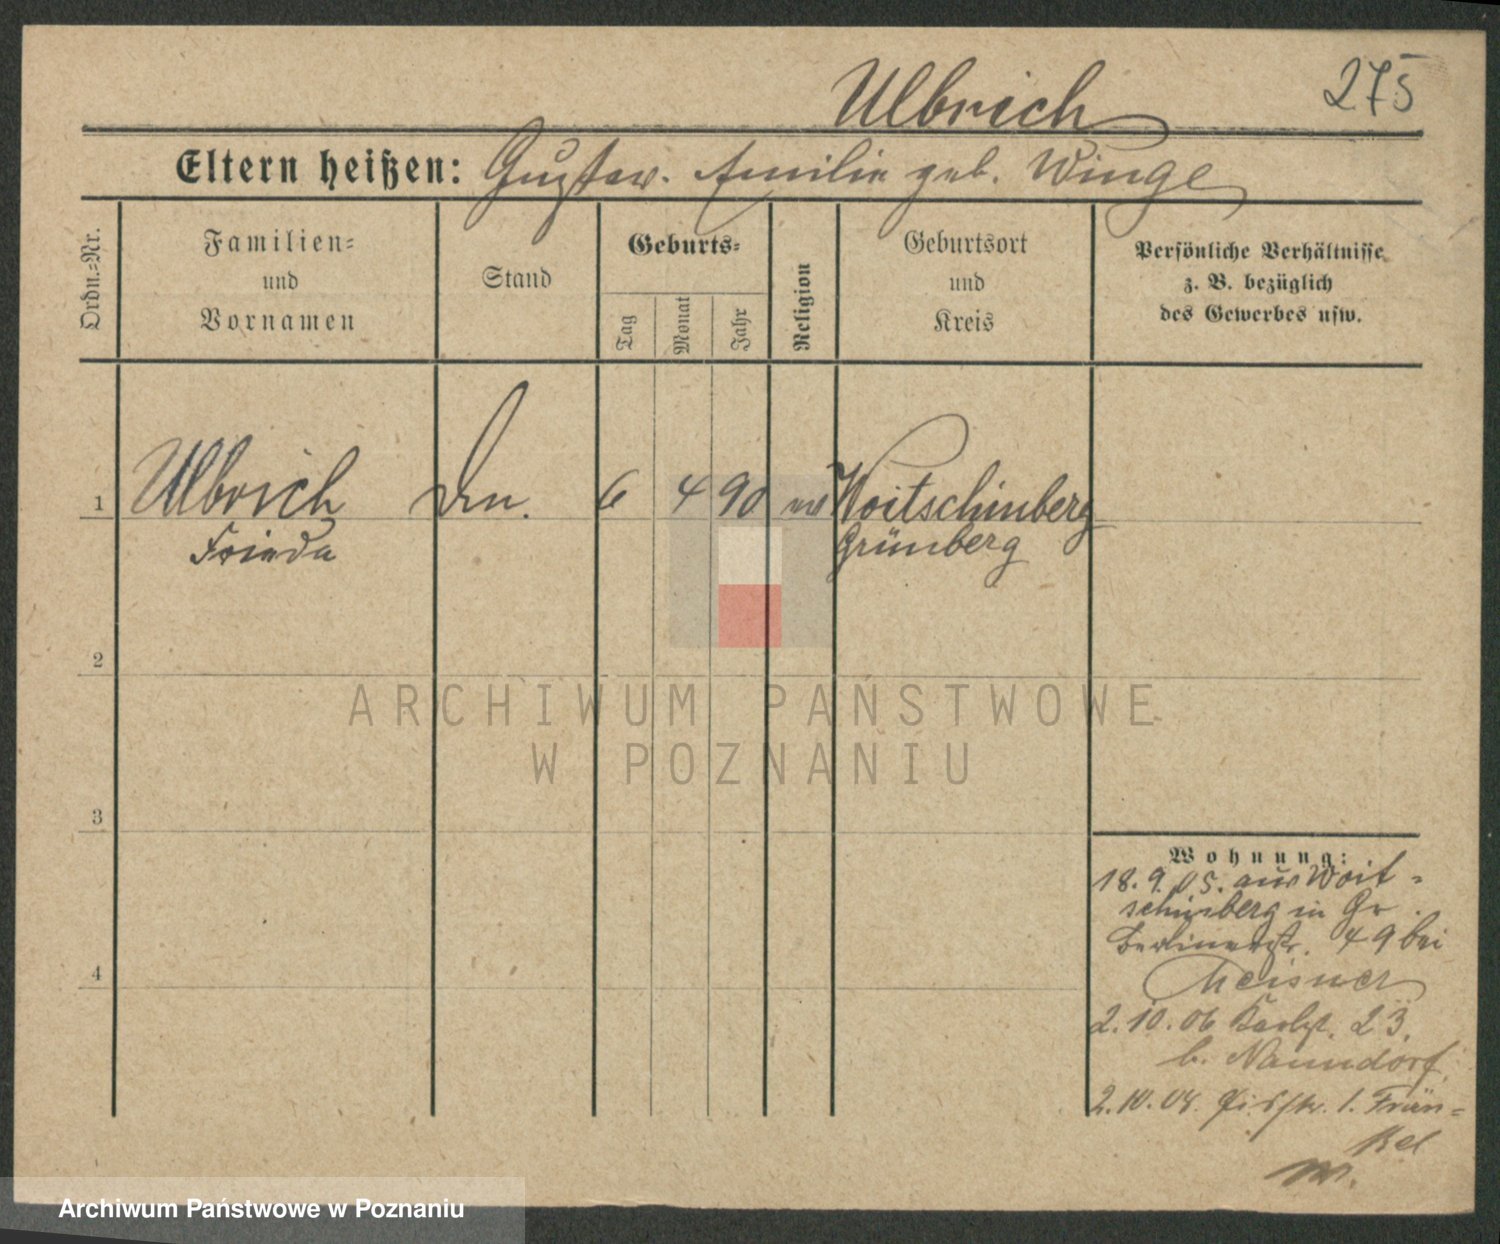 Ulbrich
275
Eltern heißen: Gustav. Emilie geb. Winge
Ordn.=Nr.
Familien=
und
Vornamen
Stand
Geburts=
Tag
Monat
Jahr
Religion
Geburtsort
und
Kreis
Persönliche Verhältnisse
z. B. bezüglich
des Gewerbes usw.
1 Ulbrich 6 4 90 ev Woitschinberg
Frieda Grünberg
2
ARCHIWUM PAŃSTWOWE
W POZNANIU
3
Wohnung:
18. 9. 05. aus Woit=
schinberg in Gr.
Berlinerstr. 49 bei
Meisner
2. 10. 06 23.
b. Naundorf
4
2. 10. 08. 1. Frän=
kel
Archiwum Państwowe w Poznaniu